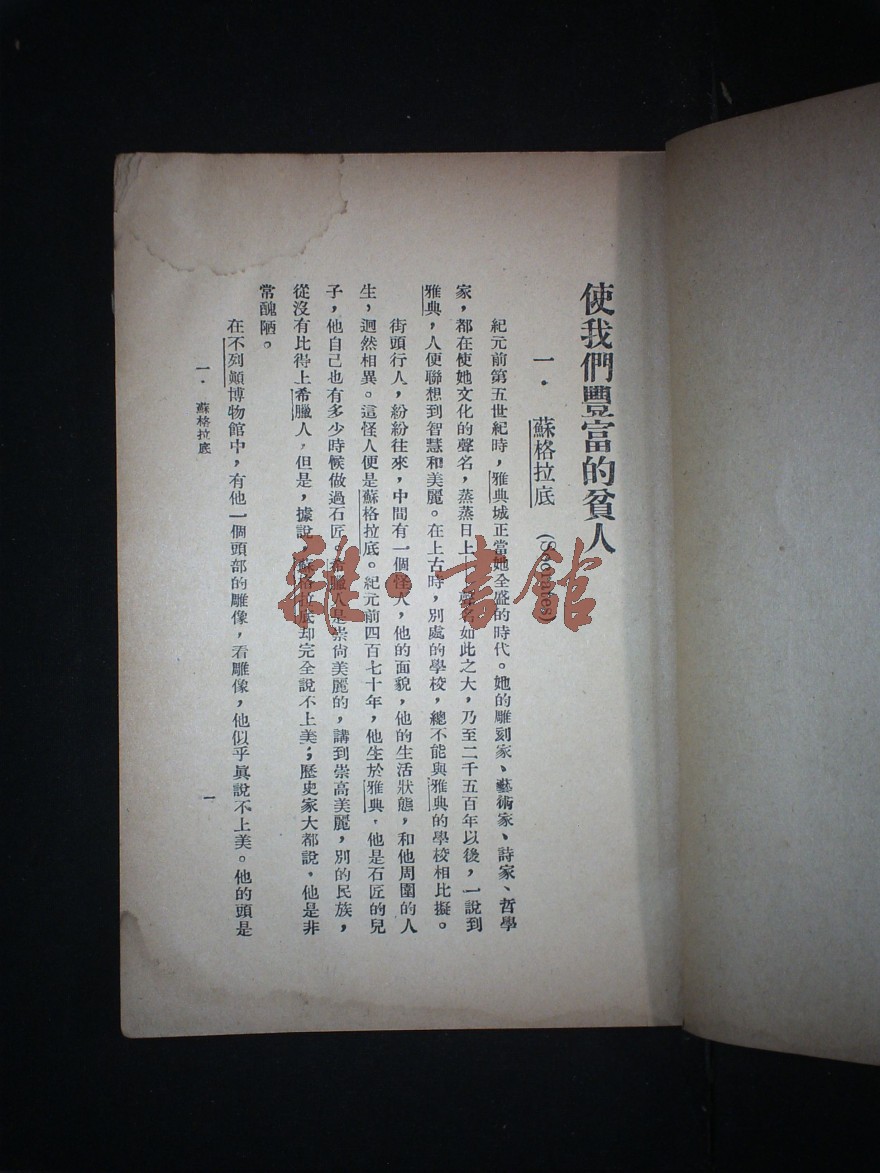 使我們豐富的貧人
一．蘇格拉底 (Socrates)
紀元前第五世紀時，雅典城正當她全盛的時代。她的雕刻家、藝術家、詩家、哲學
家，都在使她文化的聲名，蒸蒸日上，聲名如此之大，乃至二千五百年以後，一說到
雅典，人便聯想到智慧和美麗。在上古時，別處的學校，總不能與雅典的學校相比擬。
街頭行人，紛紛往來，中間有一個怪人，他的面貌，他的生活狀態，和他周圍的人
生，迥然相異。這怪人便是蘇格拉底。紀元前四百七十年，他生於雅典，他是石匠的兒
子，他自己也有多少時候做過石匠。希臘人是崇尚美麗的，講到崇高美麗，別的民族，
從沒有比得上希臘人，但是，據說，蘇格拉底却完全說不上美；歷史家大都說，他是非
常醜陋。
在不列顛博物館中，有他一個頭部的雕像，看雕像，他似乎眞說不上美。他的頭是
一．蘇格拉底
一
雜·書館